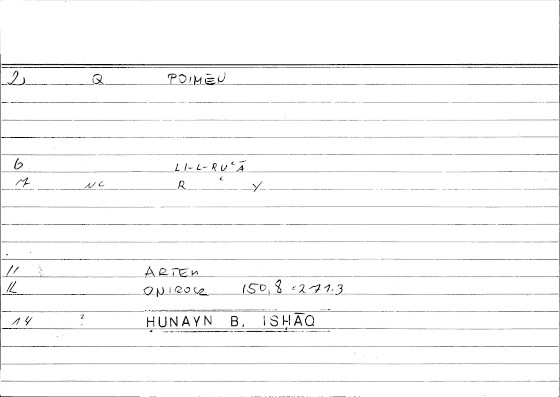 2, Q POIMĒN
6 LI-L-RUʿĀ
17 NC R ʿ Y
11 ARTEM
12 ONIROCR 150,8 = 271.3
14 ? HUNAYN B. ISḤĀQ